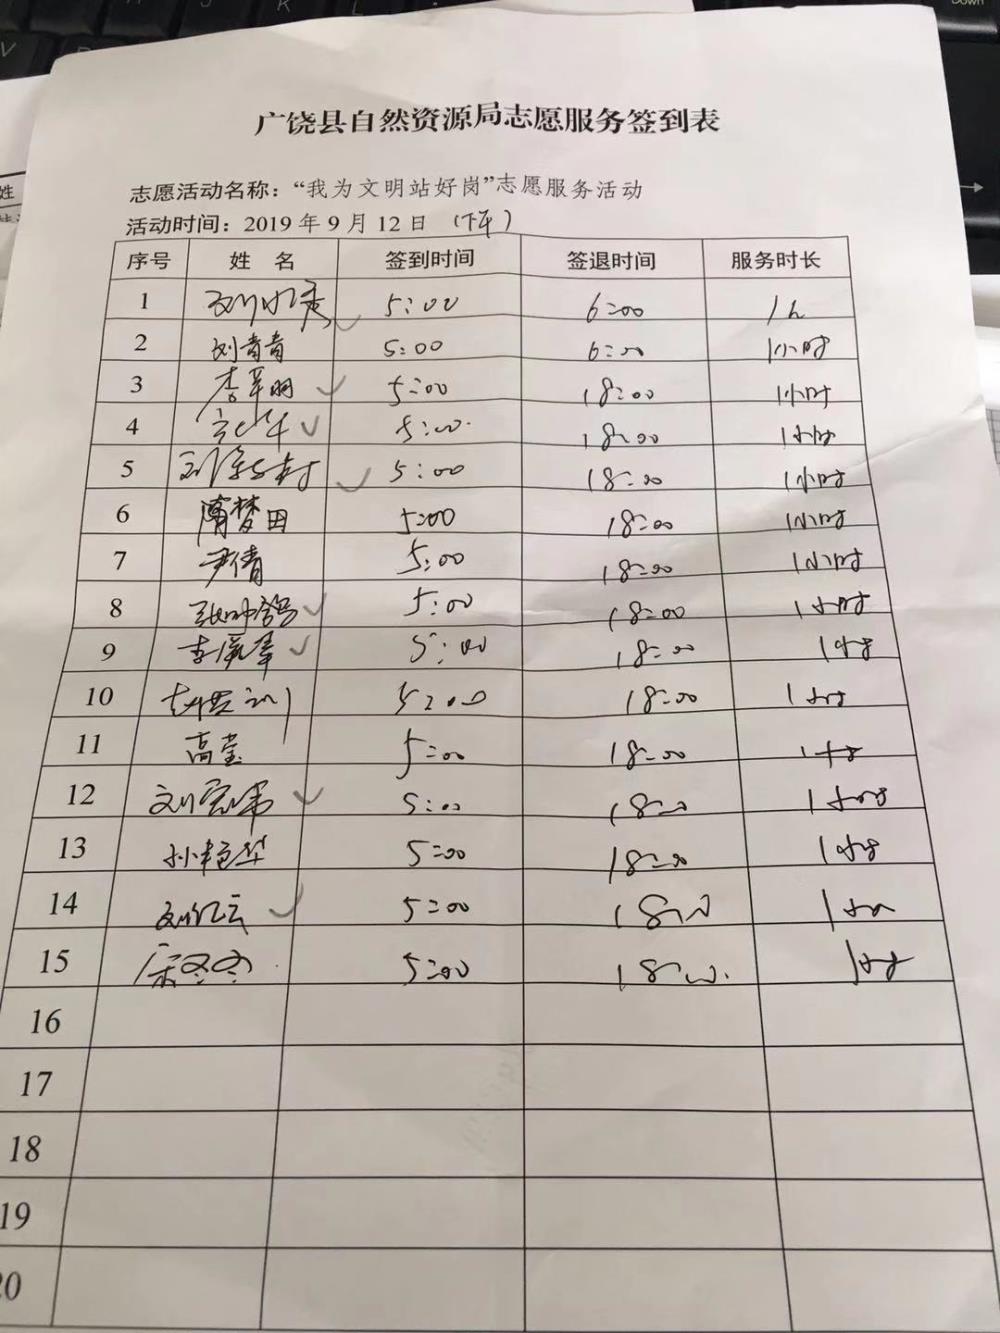 广饶县自然资源局志愿服务签到表
志愿活动名称：“我为文明站好岗”志愿服务活动
活动时间：2019年9月12日（下午）
序号 姓名 签到时间 签退时间 服务时长
1 5:00 6:00 1h
2 刘青青 5:00 6:00 1小时
3 5:00 18:00 1小时
4 5:00 18:00 1小时
5 5:00 18:00 1小时
6 隋梦田 5:00 18:00 1小时
7 尹倩 5:00 18:00 1小时
8 5:00 18:00 1小时
9 5:00 18:00 1小时
10 5:00 18:00 1小时
11 高莹 5:00 18:00 1小时
12 5:00 18:00 1小时
13 孙艳华 5:00 18:00 1小时
14 5:00 18:00 1小时
15 宋冬冬 5:00 18:00 1小时
16
17
18
19
20